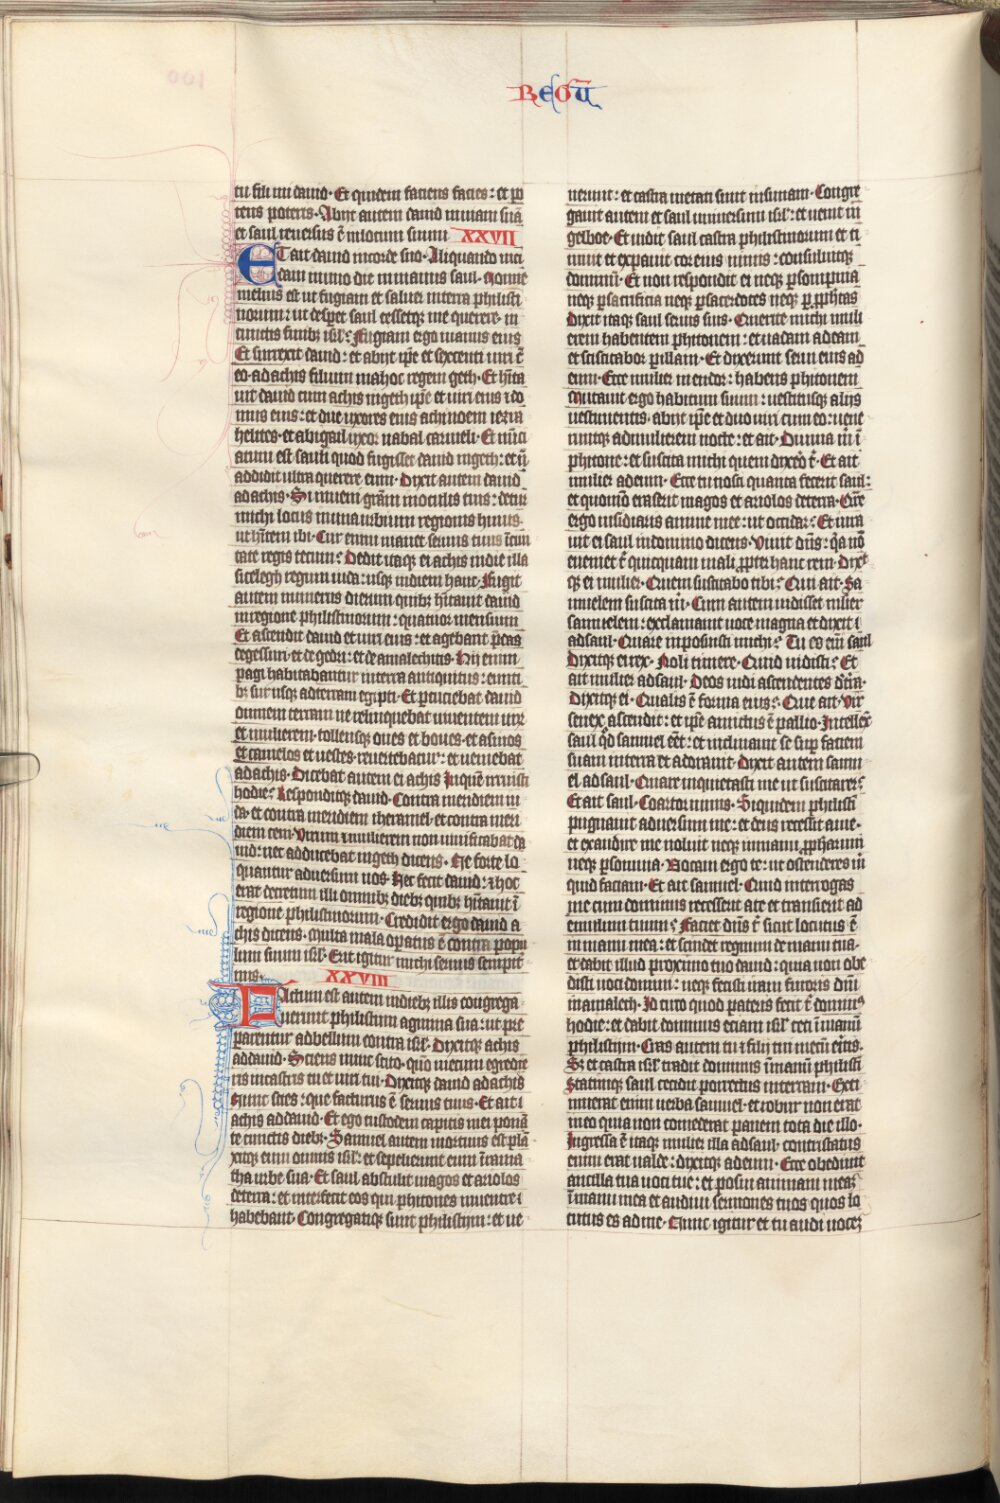 Regū
tu fili mi dauid· Et quidem faciens facies: et po
tens poteris· Abijt autem dauid in uiam suā
et saul reuersus ē in locum suum XXVII
ET ait dauid in corde suo· Aliquando inci
dam in uno die in manus saul· Nonne
melius est ut fugiam et saluer in terra philisti
norum: ut desperet saul cessetqꝫ me querere in
cunctis finibꝫ isrl'? Fugiam ergo manus eius
Et surrexit dauid: et abijt ipse et sexcenti uiri cū
eo· ad achis filium mahoc regem geth· Et hīta
uit dauid cum achis in geth ipse et uiri eius ⁊ do
mus eius: et due uxores eius achinoem iezra
helites· et abigail uxor nabal carmeli· Et nūci
atum est sauli quod fugisset dauid in geth: et nō
addidit ultra querere eum· Dixit autem dauid
ad achis· Si inueni grām in oculis tuis: detur
michi locus in una urbium regionis huius·
ut hītem ibi· Cur enim manet seruus tuus ī ciui
tate regis tecum? Dedit itaqꝫ ei achis in die illa
sicelegh regum iuda: usqꝫ in diem hanc· Fuit
autem numerus dierum quibꝫ hītauit dauid
in regione philistinorum: quatuor mensium
Et ascendit dauid et uiri eius: et agebant p̄das
de gessuri· et de gedri: et de amalechitis· Hij enim
pagi habitabantur in terra antiquitus: eunti
bꝫ sur usqꝫ ad terram egipti· Et percutiebat dauid
omnem terram ne relinquebat uiuentem uirū
et mulierem· tollensqꝫ oues et boues· et asinos
et camelos et uestes· reuertebatur: et ueniebat
ad achis· Dicebat autem ei achis In quē irruisti
hodie? Responditqꝫ dauid· Contra meridiem iu
da· et contra meridiem iheramel· et contra meri
diem ceni· Virum ⁊ mulierem non uiuificabat da
uid: nec adducebat in geth dicens· Ne forte lo
quantur aduersum nos· Hec fecit dauid: ⁊ hoc
erat decretum illi omnibꝫ diebꝫ quibꝫ hītauit ī
regione philistinorum· Credidit ergo dauid a
chis dicens· Multa mala operatus ē contra popu
lum suum isrl'· Erit igitur michi seruus sempit
nus· XXVIII
FActum est autem in diebꝫ illis congrega
uerunt philistiim agmina sua: ut pre
parentur ad bellum contra isrl'· Dixitqꝫ achis
ad dauid· Sciens nunc scito· quō mecum egredie
ris in castris tu et uiri tui· Dixitqꝫ dauid ad achis
Nunc scies: que facturus ē seruus tuus· Et ait ⁊
achis ad dauid· Et ego custodem capitis mei ponā
te cunctis diebꝫ· Samuel autem mortuus est plā
xitqꝫ eum omnis isrl': et sepelierunt eum ī rama
tha urbe sua· Et saul abstulit magos et ariolos
de terra: et interfecit eos qui phitones in uentre ⁊
habebant· Congregatiqꝫ sunt philistiim: et ue
nerunt: et castra metati sunt in sunam· Congre
gauit autem et saul uniuersum isrl': et uenit in
gelboe· Et uidit saul castra philistinorum et ti
muit et expauit cor eius nimis: consuluitqꝫ
dominū· Et non respondit ei neqꝫ per sompnia
neqꝫ per sacrificia neqꝫ per sacerdotes neqꝫ per pphetas
Dixit itaqꝫ saul seruis suis· Querite michi muli
erem habentem phitonem: et uadam ad eam
et suscitabor per illam· Et dixerunt serui eius ad
eum· Ecce mulier in endor: habens phitonem
Mutauit ergo habitum suum: uestitusqꝫ alijs
uestimentis· abijt ipse et duo uiri cum eo: uene
runtqꝫ ad mulierem nocte: et ait· Diuina m̄ i
phitone: et suscita michi quem dixero t̄· Et ait
mulier ad eum· Ecce tu nosti quanta fecerit saul:
et quomō eraserit magos et ariolos de terra· Qūre
ergo insidiaris anime mee: ut occidar? Et iura
uit ei saul in domino dicens· Viuit dn̄s: qa nō
eueniet t̄ quicquam mali ppter hanc rem· Dixit
qꝫ ei mulier· Quem suscitabo tibi? Qui ait· Sa
muelem suscita m̄· Cum autem uidisset mlier
samuelem: exclamauit uoce magna et dixit ⁊
ad saul· Quare inposuisti michi? Tu es eni saul
Dixitqꝫ ei rex· Noli timere· Quid uidisti? Et
ait mulier ad saul· Deos uidi ascendentes d' t'ra·
Dixitqꝫ ei· Qualis ē forma eius? Que ait· Vir
senex ascendit: et ipse amictus ē pallio· Intellex
saul qd samuel eēt: et inclinauit se sup faciem
suam in terra et adorauit· Dixit autem samu
el ad saul· Quare inquietasti me ut suscitarer?
Et ait saul· Coartor nimis· Siquidem philisti
pugnant aduersum me: et deus recessit a me·
et exaudire me noluit neqꝫ in manu ppharum
neqꝫ per sompnia· Vocaui ergo te: ut ostenderes m̄
quid faciam· Et ait samuel· Quid interrogas
me cum dominus recesserit a te et transierit ad
emulum tuum? Faciet dn̄s t̄ sicut locutus ē
in manu mea: et scindet regnum de manu tua·
et dabit illud proximo tuo dauid: quia non obe
disti uoci domini: neqꝫ fecisti iram furoris dn̄i
in amalech· Id circo quod pateris fecit t̄ dominꝰ
hodie: et dabit dominus eciam isrl' tecū ī manū
philistiim· Cras autem tu ⁊ filij tui mecū eritis·
Sꝫ et castra isrl' tradet dominus ī manū philisti
Statimqꝫ saul cecidit porrectus in terram· Exti
muerat enim uerba samuel· et robur non erat
in eo quia non comederat panem tota die illo·
Ingressa ē itaqꝫ mulier illa ad saul· conturbatus
enim erat ualde: dixitqꝫ ad eum· Ecce obediuit
ancilla tua uoci tue: et posui animam meam
ī manu mea et audiui sermones tuos quos lo
cutus es ad me· Nunc igitur et tu audi uocem